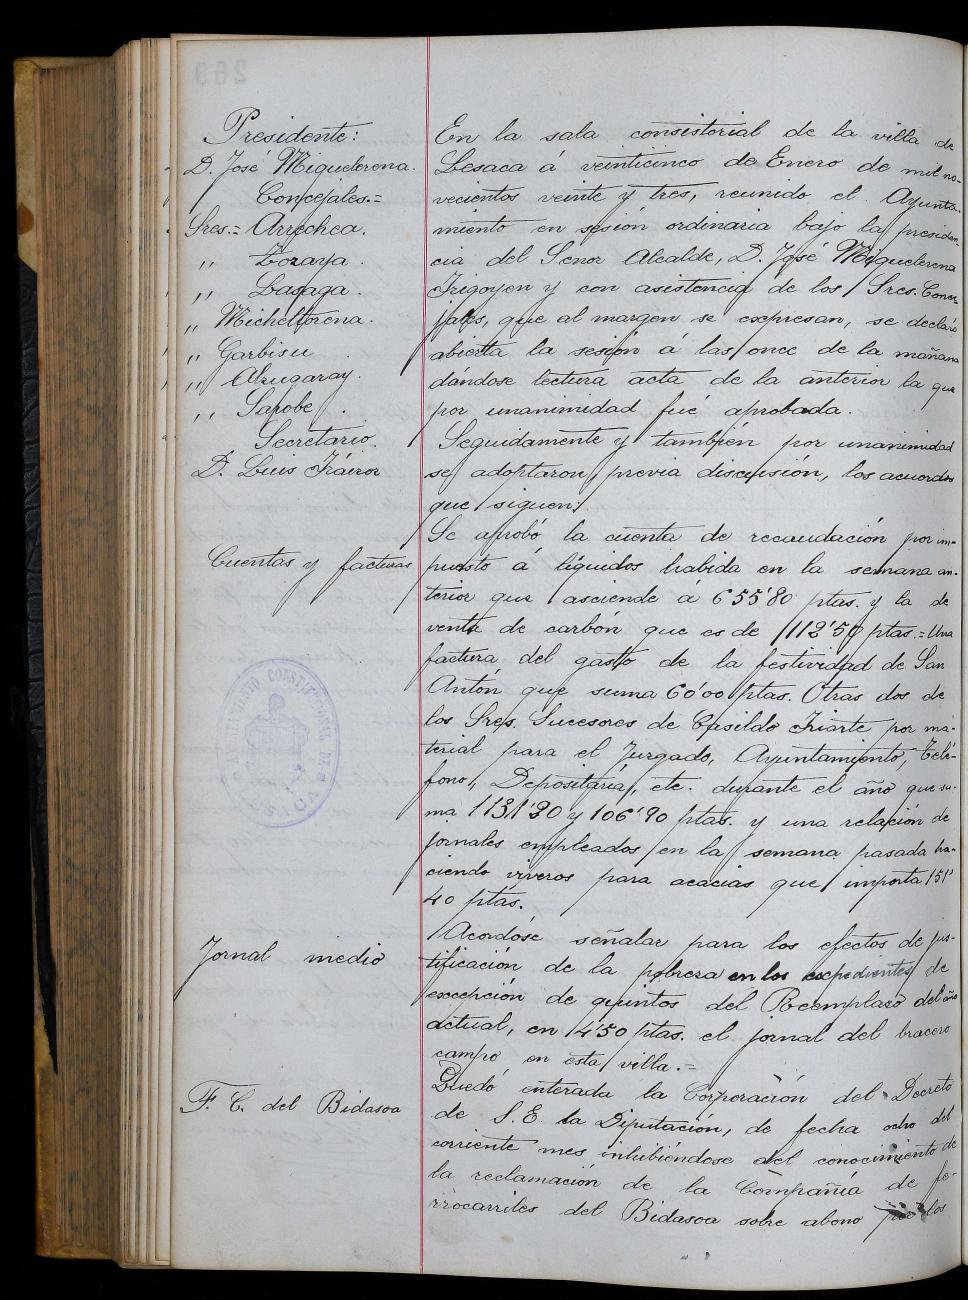 Presidente:
D. José Miquelerena.
Concejales.=
Sres.= Arrechea.
,, Zozaya.
,, Lasaga.
,, Micheltorena.
,, Garbisu.
,, Alzugaray.
,, Sarobe.
Secretario.
D. Luis Iráizoz
En la sala consistorial de la villa de
Lesaca á veinticinco de Enero de mil no-
vecientos veinte y tres, reunido el Ayunta-
miento en sesión ordinaria bajo la presiden-
cia del Señor Alcalde, D. José Miquelerena
Irigoyen y con asistencia de los Sres. Conce-
jales, que al margen se expresan, se declaró
abierta la sesión á las once de la mañana
dándose lectura acta de la anterior la que
por unanimidad fué aprobada.
Seguidamente y también por unanimidad
se adoptaron, previa discusión, los acuerdos
que siguen:
Cuentas y facturas
Se aprobó la cuenta de recaudación por im-
puesto á líquidos habida en la semana an-
terior que asciende á 655'80 ptas. y la de
venta de carbón que es de 1112'50 ptas.= Una
factura del gasto de la festividad de San
Antón que suma 60'00 ptas. Otras dos de
los Sres. Sucesores de Casildo Iriarte por ma-
terial para el Juzgado, Ayuntamiento, Telé-
fono, Depositaría, etc. durante el año que su-
ma 1131'20 y 106'90 ptas. y una relación de
jornales empleados en la semana pasada ha-
ciendo viveros para acacias que importa 151'
40 ptas.
Jornal medio
Acordóse señalar para los efectos de jus-
tificación de la pobreza en los expedientes de
excepción de quintos del Reemplazo del año
actual, en 4'50 ptas. el jornal del bracero
campo en esta villa.=
F. C. del Bidasoa
Quedó enterada la Corporación del Decreto
de S.E. la Diputación, de fecha ocho del
corriente mes inhibiéndose del conocimiento de
la reclamación de la Compañía de fe-
rrocarriles del Bidasoa sobre abono por los
AYUNTAMIENTO CONSTITUCIONAL DE
LESACA
269